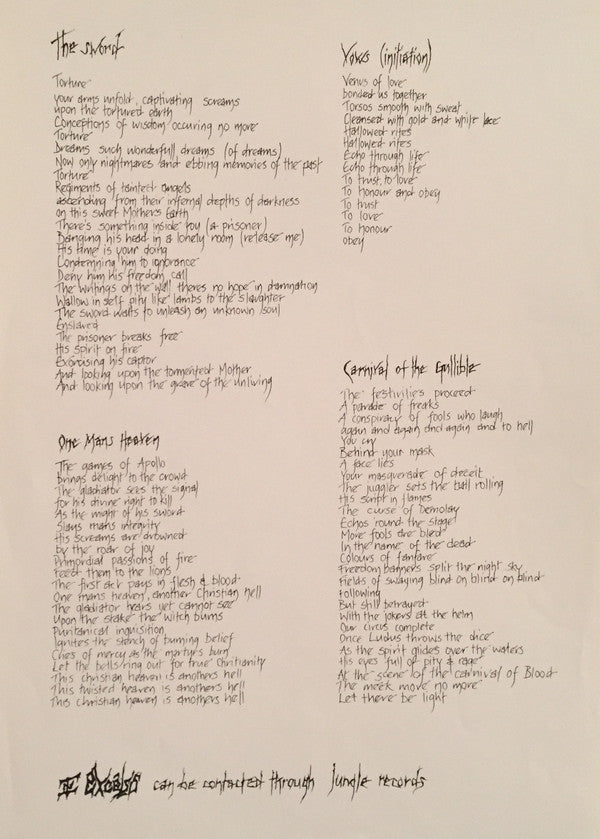 The Sword
Torture
your arms unfold, captivating screams
upon the tortured earth
Conceptions of wisdom occuring no more
Torture
Dreams such wonderfull dreams (of dreams)
Now only nightmares and ebbing memories of the past
Torture
Regiments of tainted angels
ascending from their infernal depths of darkness
on this sweet Mothers Earth
There's something inside you (a prisoner)
Banging his head in a lonely room (release me)
His time is your doing
Condemning him to ignorance
Deny him his freedom call
The writings on the wall theres no hope in damnation
Wallow in self pity like lambs to the slaughter
The sword waits to unleash an unknown soul
Enslaved
The prisoner breaks free
His spirit on fire
Exorcising his captor
And looking upon the tormented Mother
And looking upon the grave of the unliving
One Mans Heaven
The games of Apollo
brings delight to the crowd
The gladiator sees the signal
for his divine right to kill
As the might of his sword
Slays mans integrity
His screams are drowned
by the roar of joy
Primordial passions of fire
feed them to the lions
The first act pays in flesh & blood
One mans heaven, another Christian hell
The gladiator hears yet cannot see
Upon the stake the witch burns
Puritanical inquisition
Ignites the stench of burning belief
Cries of mercy as the martyrs burn
Let the bells ring out for true Christianity
This christian heaven is anothers hell
This twisted heaven is anothers hell
This christian heaven is anothers hell
Vows (initiation)
Venus of love
bonded us together
Torsos smooth with sweat
Cleansed with gold and white lace
Hallowed rites
Hallowed rites
Echo through life
Echo through life
To trust, to love
To honour and obey
To trust
To love
To honour
obey
Carnival of the Gullible
The festivities proceed
A parade of freaks
A conspiracy of fools who laugh
again and again and again and to hell
You cry
Behind your mask
A face lies
Your masquerade of deceit
The juggler sets the ball rolling
His script in flames
The curse of Demolay
Echos round the stage
More fools are bled
In the name of the dead
Colours of fanfare
Freedom banners split the night sky
Fields of swaying blind on blind on blind
Following
But still betrayed
With the jokers at the helm
Our circus complete
Once Ludus throws the dice
As the spirit glides over the waters
His eyes full of pity & rage
At the scene of the carnival of Blood
The meek move no more
Let there be light
In Excelsis can be contacted through Jungle records